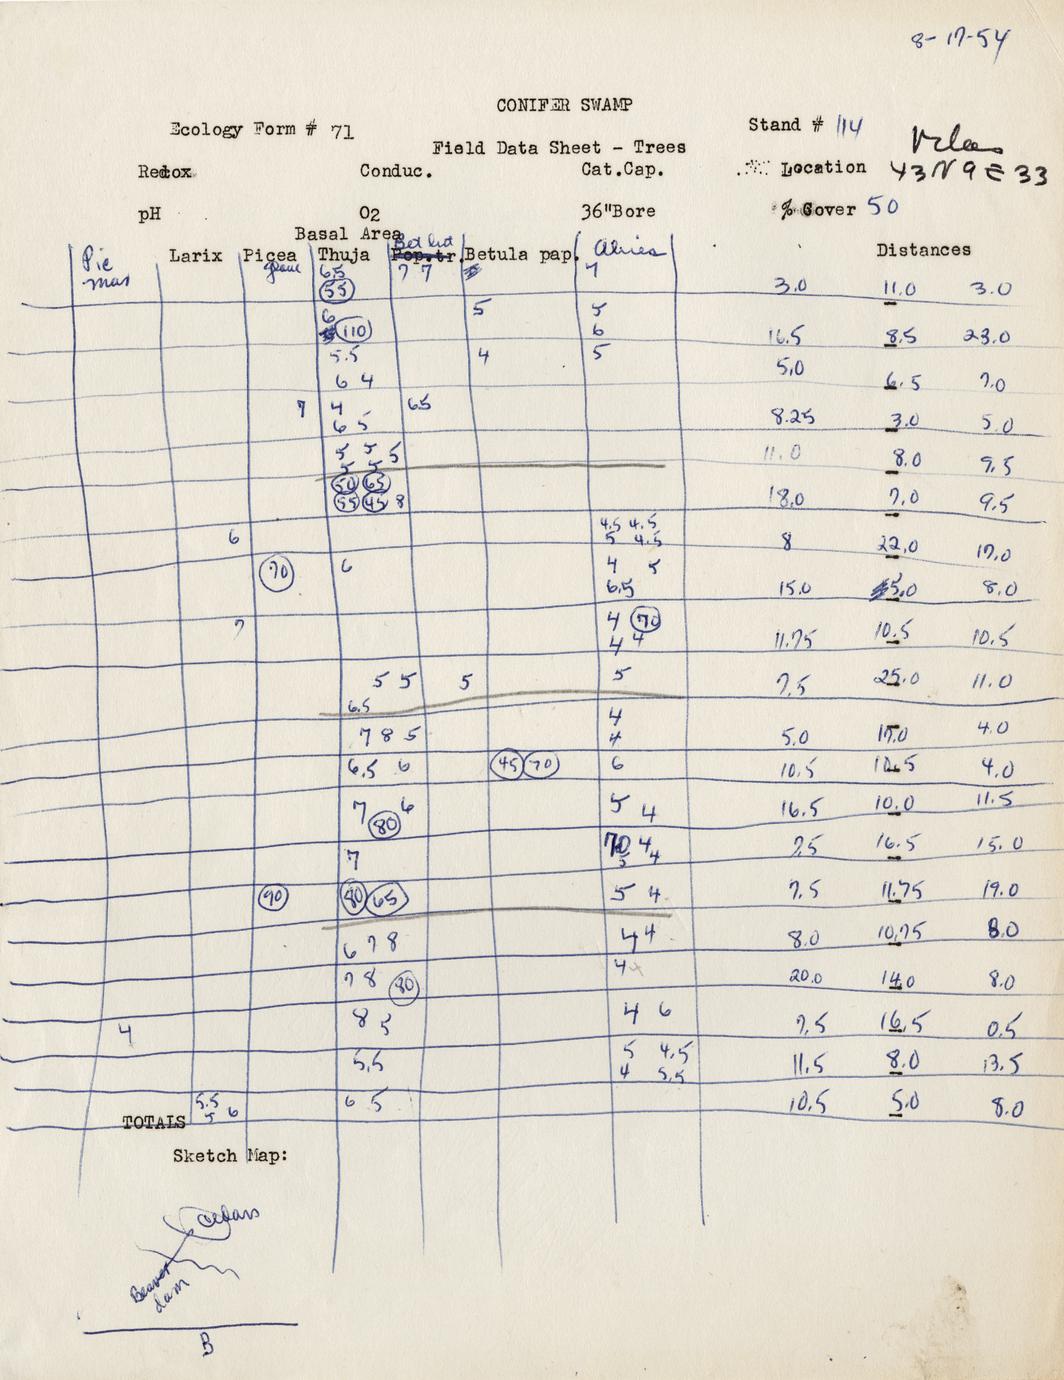 8-17-54
CONIFER SWAMP
Ecology Form # 71 Stand # 114
Field Data Sheet - Trees Vilas
Redox Conduc. Cat.Cap. Location 43N 9E 33
pH O2 36"Bore % Cover 50
Basal Area
Pic mar Larix Picea glauc Thuja Bet lut Pop.tr. Betula pap. Abies Distances
6.5 7 7 7
55 3.0 11.0 3.0
6 5 5
110 6 16.5 8.5 23.0
5.5 4 5 5.0
6 4 6.5 7.0
7 4 65
6 5 8.25 3.0 5.0
5 5 5 11.0
5 5 8.0 9.5
50 65
55 45 8 18.0 7.0 9.5
4.5 4.5
6 5 4.5 8 22.0 17.0
70 6 4 5
6.5 15.0 5.0 8.0
7 4 70
4 4 11.75 10.5 10.5
5 5 5 5 7.5 25.0 11.0
6.5
4
7 8 5 4 5.0 17.0 4.0
6.5 6 45 70 6 10.5 10.5 4.0
7 6 5 4 16.5 10.0 11.5
80
7 70 4 7.5 16.5 15.0
5 4
90 80 65 5 4 7.5 11.75 19.0
6 7 8 4 4 8.0 10.75 8.0
7 8 80 4 4 20.0 14.0 8.0
4 8 5 4 6 7.5 16.5 0.5
5.5 5 4.5 11.5 8.0 13.5
4 5.5
5.5 6 5 10.5 5.0 8.0
TOTALS 5 6
Sketch Map:
Cedars
Beaver
dam
B